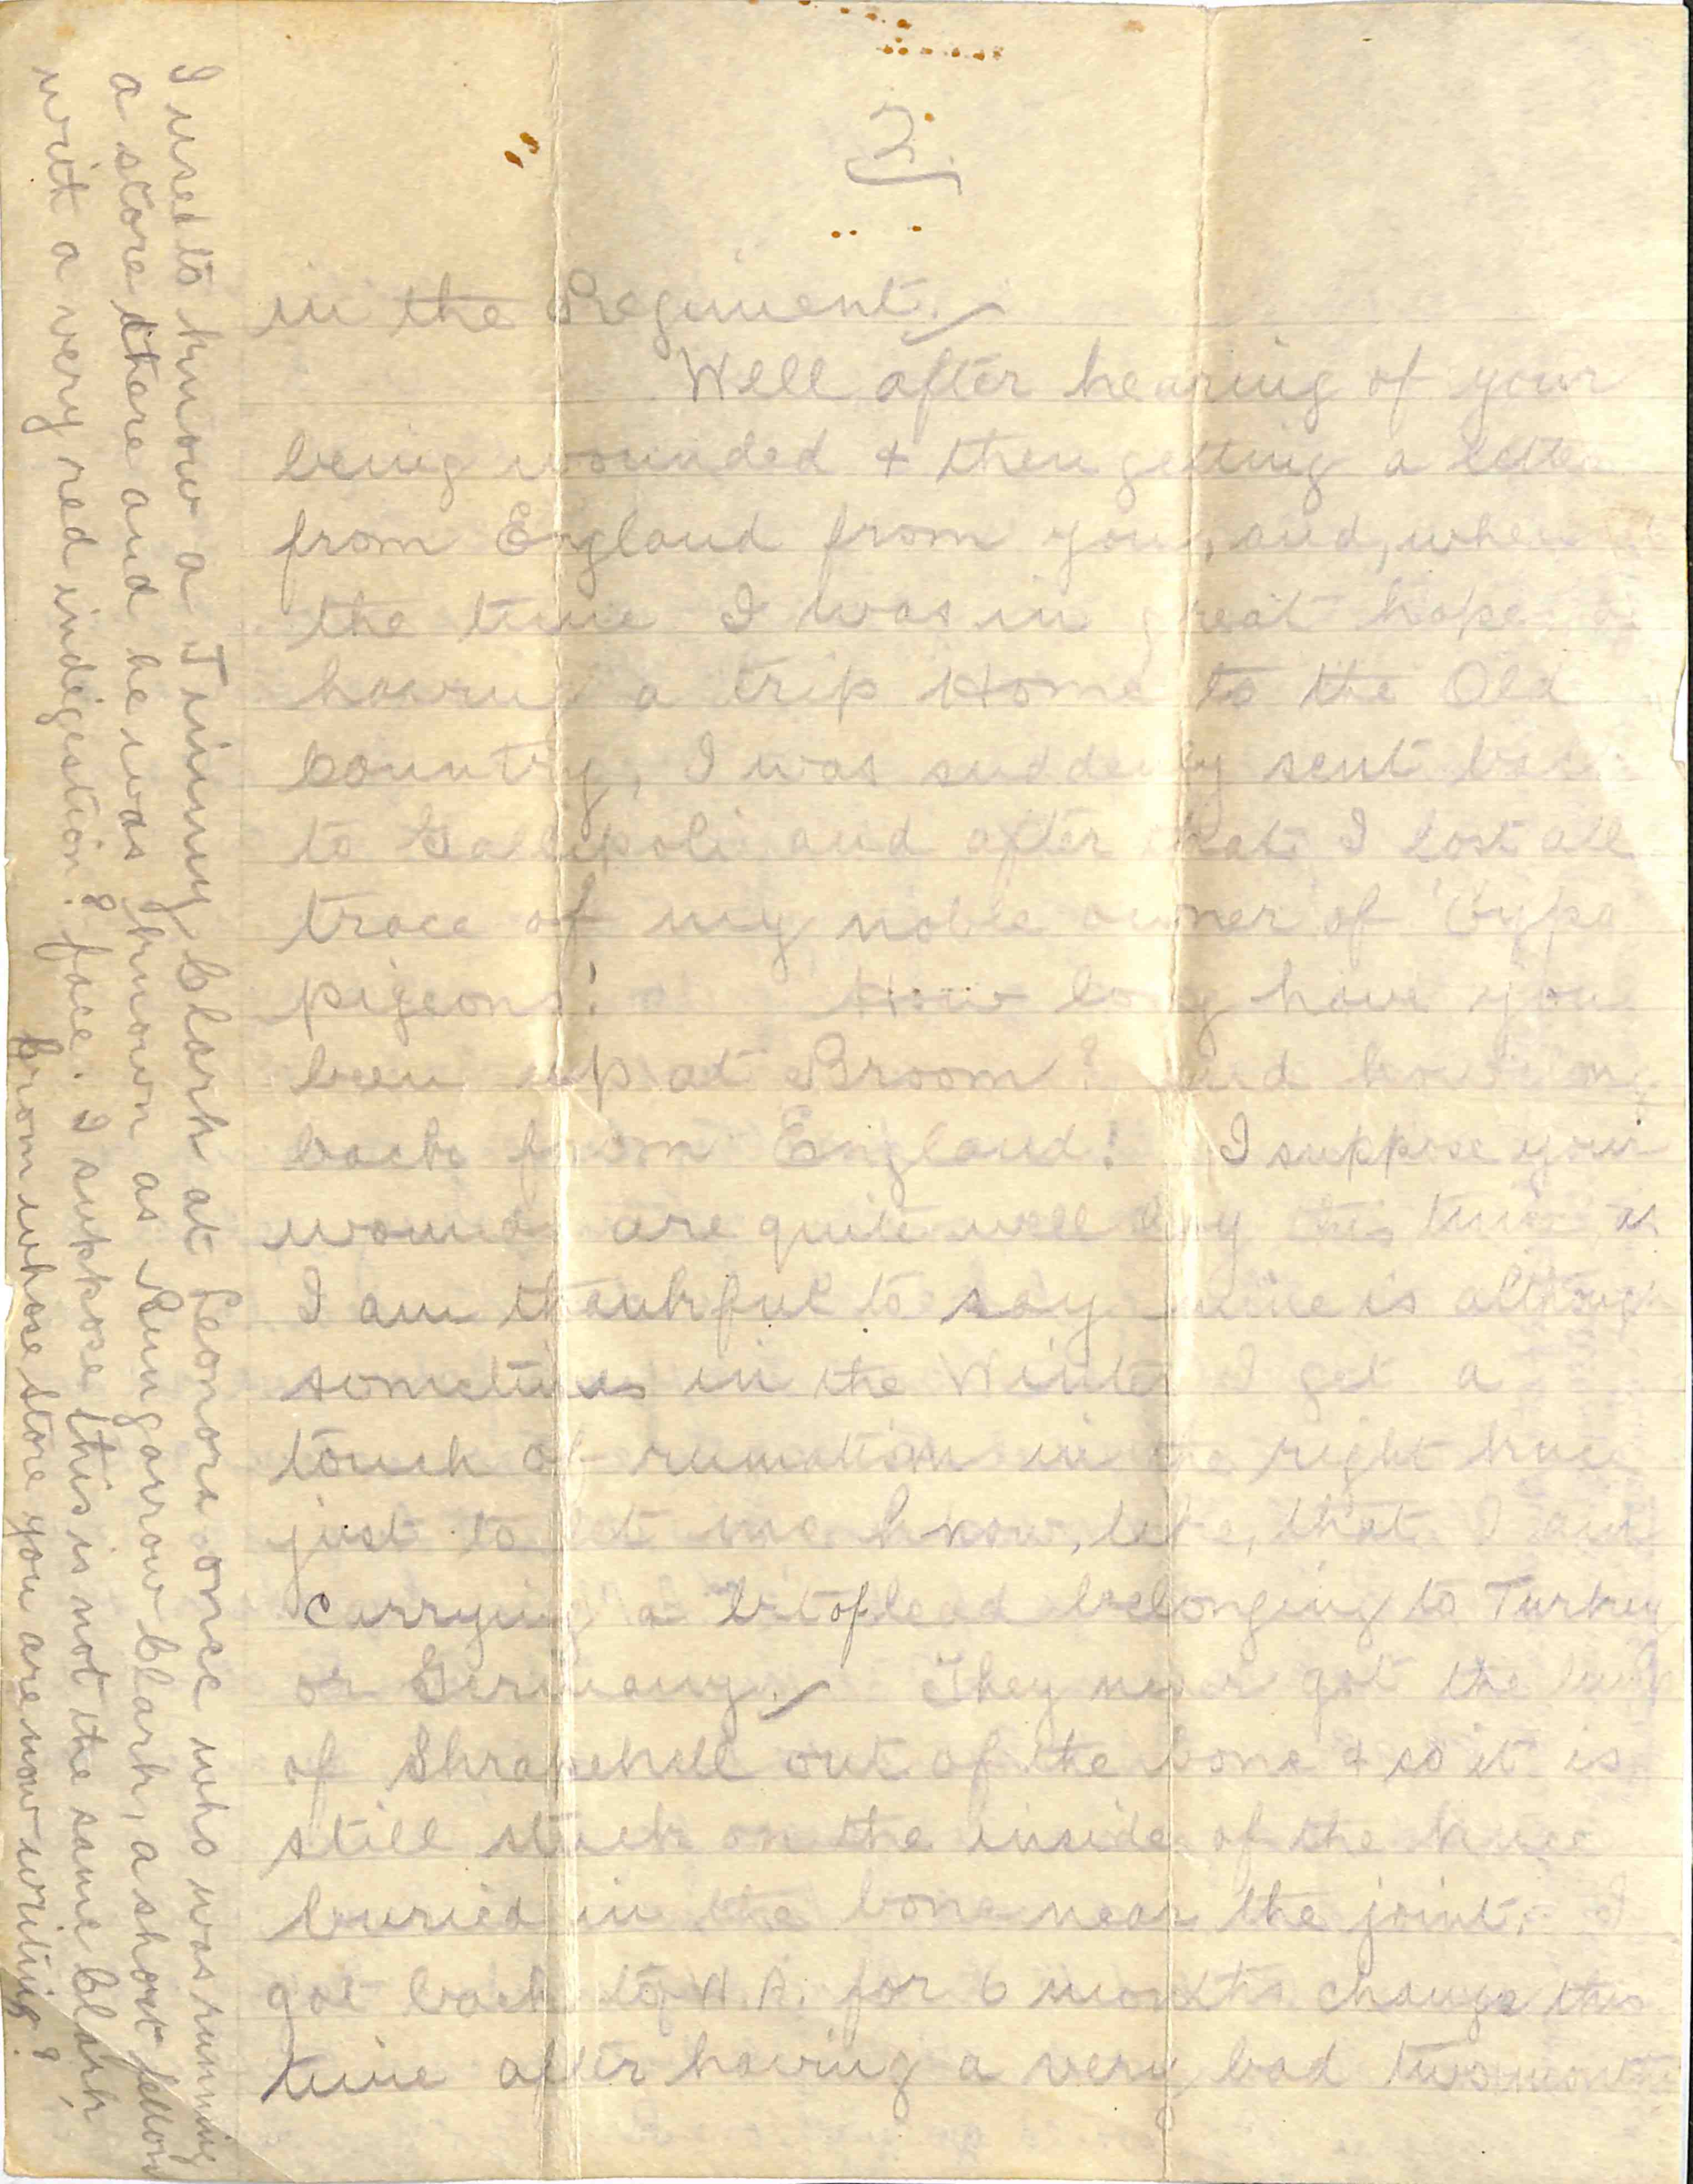 2.
in the Regiment.
Well after hearing of your
being wounded & then getting a letter
from England from you, and, when at
the time I was in great hope of
having a trip Home to the Old
Country, I was suddenly sent back
to Gallipoli and after that I lost all
trace of my noble owner of
pigeons! How long have you
been up at Broom? and how long
back from England! I suppose your
wounds are quite well by this time as
I am thankful to say mine is although
sometimes in the Winter I get a
touch of rumatism in the right knee
just to let me know, like, that I am
carrying a bit of lead belonging to Turkey
or Germany. They never got the lump
of Shrapenell out of the bone & so it is
still stuck on the inside of the knee
buried in the bone near the joint. I
got back to W.A. for 6 months change this
time after having a very bad two months
I used to know a Jimmy Clark at Leonora once who was running
a store there and he was known as Kungarrow Clark, a short fellow
with a very red indigestion? face. I suppose this is not the same Clark,
from whose store you are now writing?